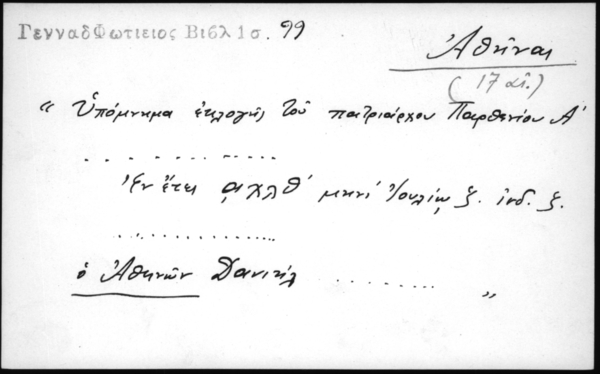 ΓενναδΦωτιειος Βιβλ 1σ. 99
Ἀθῆναι
(17 αἰ.)
“ Ὑπόμνημα ἐκλογῆς τοῦ πατριάρχου Παρθενίου Α'
. . . . . . . . . . . .
Ἐν ἔτει ͵αχλθ' μηνὶ Ἰουλίῳ ξ. ἰνδ. ξ.
. . . . . . . . . . . . . .
ὁ Ἀθηνῶν Δανιὴλ . . . . . . . . . ”